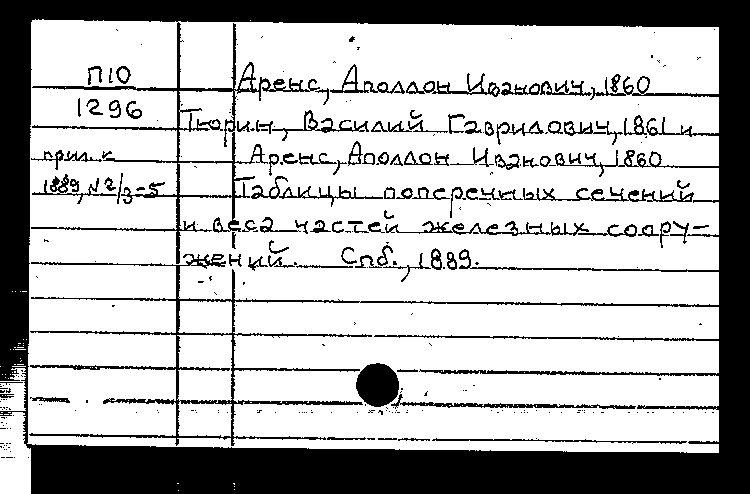 П10
1296
прил. к
1889, №2/3=5
Аренс, Аполлон Иванович, 1860
Тюрин, Василий Гаврилович, 1861 и
Аренс, Аполлон Иванович, 1860
Таблицы поперечных сечений
и веса частей железных соору-
жений. Спб., 1889.